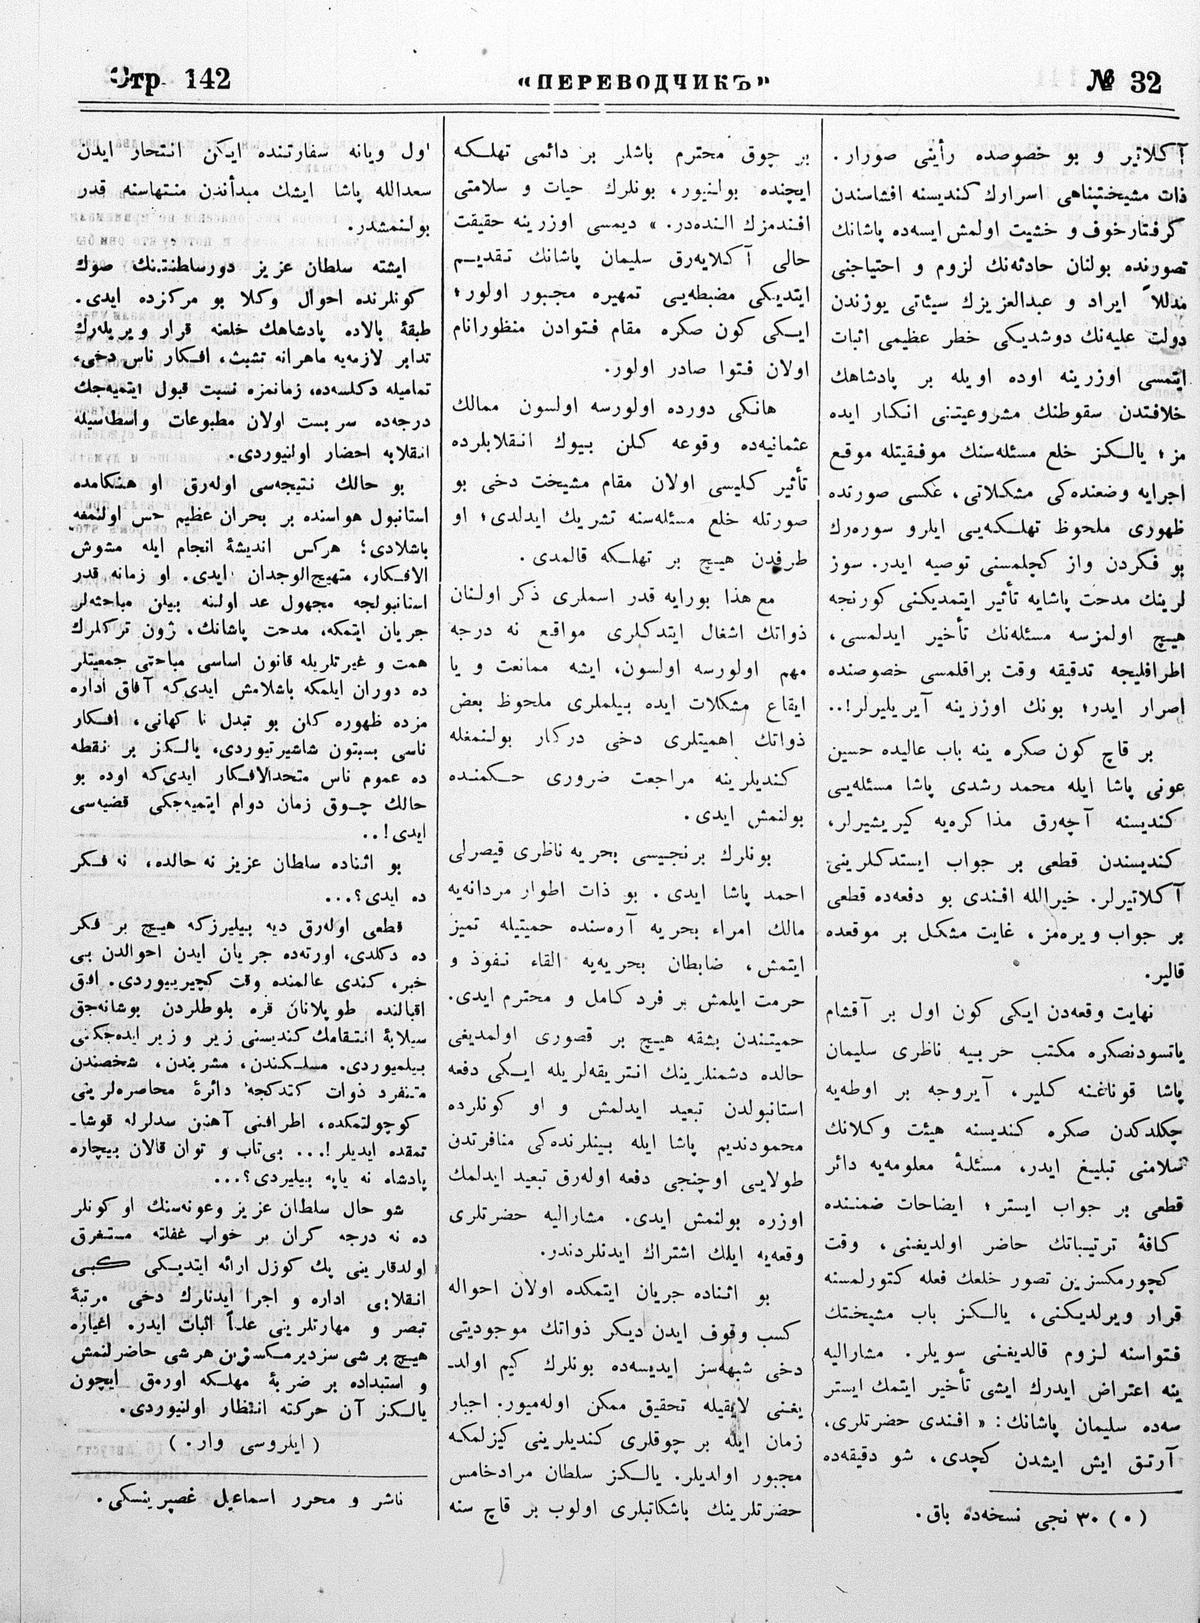 Стр 142
«ПЕРЕВОДЧИКЪ»
№ 32
آكلاتیر و بو خصوصده رأینی صورار.
ذات مشیختپناهی اسرارك كندیسنه افشاسندن
گرفتار خوف و خشیت اولمش ایسه‌ده پاشانك
تصورنده بولنان حادثه‌نك لزوم و احتیاجنی
مدللاً ایراد و عبدالعزیزك سیئاتی یوزندن
دولت علیه‌نك دوشدیكی خطر عظیمی اثبات
ایتمسی اوزرینه اوده اویله بر پادشاهك
خلافتدن سقوطنك مشروعیتنی انكار ایده
مز؛ یالكز خلع مسئله‌سنك موفقیتله موقع
اجرایه وضعنده‌كی مشكلاتی، عكسی صورتده
ظهوری ملحوظ تهلكه‌یی ایلرو سوره‌رك
بو فكردن واز كچلمسنی توصیه ایدر. سوز
لرینك مدحت پاشایه تأثیر ایتمدیكنی كورنجه
هیچ اولمزسه مسئله‌نك تأخیر ایدلمسی،
اطرافلیجه تدقیقه وقت براقلمسی خصوصنده
اصرار ایدر؛ بونك اوزرینه آیریلیرلر!..
بر قاچ كون صكره ینه باب عالیده حسین
عونی پاشا ایله محمد رشدی پاشا مسئله‌یی
كندیسنه آچه‌رق مذاكره‌یه كیریشیرلر،
كندیسندن قطعی بر جواب ایستدكلرینی
آكلاتیرلر. خیرالله افندی بو دفعه‌ده قطعی
بر جواب ویره‌مز، غایت مشكل بر موقعده
قالیر.
نهایت وقعه‌دن ایكی كون اول بر آقشام
یاتسودنصكره مكتب حربیه ناظری سلیمان
پاشا قوناغنه كلیر، آیروجه بر اوطه‌یه
چكلدكدن صكره كندیسنه هیئت وكلانك
سلامنی تبلیغ ایدر، مسئلهٔ معلومه‌یه دائر
قطعی بر جواب ایستر؛ ایضاحات ضمننده
كافهٔ ترتیباتك حاضر اولدیغنی، وقت
كچورمكسزین تصور خلعك فعله كتورلمسنه
قرار ویرلدیكنی، یالكز باب مشیختك
فتواسنه لزوم قالدیغنی سویلر. مشارالیه
ینه اعتراض ایدرك ایشی تأخیر ایتمك ایستر
سه‌ده سلیمان پاشانك: « افندی حضرتلری،
آرتق ایش ایشدن كچدی، شو دقیقه‌ده
(٥) ٣٠ نجی نسخه‌ده باق.
بر چوق محترم باشلر بر دائمی تهلكه
ایچنده بولنیور، بونلرك حیات و سلامتی
افندمزك النده‌در. » دیمسی اوزرینه حقیقت
حالی آكلایه‌رق سلیمان پاشانك تقدیم
ایتدیكی مضبطه‌یی تمهیره مجبور اولور؛
ایكی كون صكره مقام فتوادن منظورانام
اولان فتوا صادر اولور.
هانكی دورده اولورسه اولسون ممالك
عثمانیه‌ده وقوعه كلن بیوك انقلابلرده
تأثیر كلیسی اولان مقام مشیخت دخی بو
صورتله خلع مسئله‌سنه تشریك ایدلدی؛ او
طرفدن هیچ بر تهلكه قالمدی.
مع هذا بورایه قدر اسملری ذكر اولنان
ذواتك اشغال ایتدكلری مواقع نه درجه
مهم اولورسه اولسون، ایشه ممانعت و یا
ایقاع مشكلات ایده بیلملری ملحوظ بعض
ذواتك اهمیتلری دخی دركار بولنمغله
كندیلرینه مراجعت ضروری حكمنده
بولنمش ایدی.
بونلرك برنجیسی بحریه ناظری قیصرلی
احمد پاشا ایدی. بو ذات اطوار مردانه‌یه
مالك امراء بحریه آره‌سنده حمیتیله تمیز
ایتمش، ضابطان بحریه‌یه القاء نفوذ و
حرمت ایلمش بر فرد كامل و محترم ایدی.
حمیتندن بشقه هیچ بر قصوری اولمدیغی
حالده دشمنلرینك انتریقه‌لریله ایكی دفعه
استانبولدن تبعید ایدلمش و او كونلرده
محمودندیم پاشا ایله بینلرنده‌كی منافرتدن
طولایی اوچنجی دفعه اوله‌رق تبعید ایدلمك
اوزره بولنمش ایدی. مشارالیه حضرتلری
وقعه‌یه ایلك اشتراك ایدنلردندر.
بو اثناده جریان ایتمكده اولان احواله
كسب وقوف ایدن دیكر ذواتك موجودیتی
دخی شبهه‌سز ایدیسه‌ده بونلرك كیم اولد-
یغنی لایقیله تحقیق ممكن اوله‌میور. اجبار
زمان ایله بر چوقلری كندیلرینی كیزلمكه
مجبور اولدیلر. یالكز سلطان مراد خامس
حضرتلرینك باشكاتبلری اولوب بر قاچ سنه
اول ویانه سفارتنده ایكن انتحار ایدن
سعدالله پاشا ایشك مبدأندن منتهاسنه قدر
بولنمشدر.
ایشته سلطان عزیز دورسلطنتنك صوك
كونلرنده احوال وكلا بو مركزده ایدی.
طبقهٔ بالاده پادشاهك خلعنه قرار ویریله‌رك
تدابر لازمه‌یه ماهرانه تشبث، افكار ناس دخی،
تمامیله دكلسه‌ده، زمانمزه نسبت قبول ایتمیه‌جك
درجه‌ده سربست اولان مطبوعات واسطاسیله
انقلابه احضار اولنیوردی.
بو حالك نتیجه‌سی اوله‌رق او هنكامده
استانبول هواسنده بر بحران عظیم حس اولنمغه
باشلادی؛ هركس اندیشهٔ انجام ایله مشوش
الافكار، متهیج‌الوجدان ایدی. او زمانه قدر
استانبولجه مجهول عد اولنه بیلن مباحثه‌لر
جریان ایتمكه، مدحت پاشانك، ژون تركلرك
همت و غیرتلریله قانون اساسی مباحثی جمعیتلر
ده دوران ایلمكه باشلامش ایدی‌كه آفاق اداره
مزده ظهوره كلن بو تبدل ناكهانی، افكار
ناسی بسبتون شاشیرتیوردی، یالكز بر نقطه
ده عموم ناس متحدالافكار ایدی‌كه اوده بو
حالك چوق زمان دوام ایتمیه‌جكی قضیه‌سی
ایدی!..
بو اثناده سلطان عزیز نه حالده، نه فكر
ده ایدی؟...
قطعی اوله‌رق دیه بیلیرزكه هیچ بر فكر
ده دكلدی، اورته‌ده جریان ایدن احوالدن بی
خبر، كندی عالمنده وقت كچیریییوردی. افق
اقبالنده طوپلانان قره بلوطلردن بوشانه‌جق
سیلابهٔ انتقامك كندیسنی زیر و زبر ایده‌جكنی
بیلمیوردی. مسلكندن، مشربندن، شخصندن
متنفرد ذوات كتدكجه دائرهٔ محاصره‌لرینی
كوچولتمكده، اطرافنی آهنین سدلرله قوشا-
تمقده ایدیلر!... بی‌تاب و توان قالان بیچاره
پادشاه نه یاپه بیلیردی؟...
شو حال سلطان عزیز وعونه‌سنك او كونلر
ده نه درجه كران بر خواب غفلته مستغرق
اولدقارینی پك كوزل ارائه ایتدیكی كبی
انقلابی اداره و اجرا ایدنارك دخی مرتبهٔ
تبصر و مهارتلرینی علناً اثبات ایدر. اغیاره
هیچ بر شی سزدیرمكسزین هر شی حاضرلنمش
و استبداده بر ضربهٔ مهلكه اورمق ایچون
یالكز آن حركته انتظار اولنیوردی.
(ایلروسی وار.)
ناشر و محرر اسماعیل غصپرینسكی.